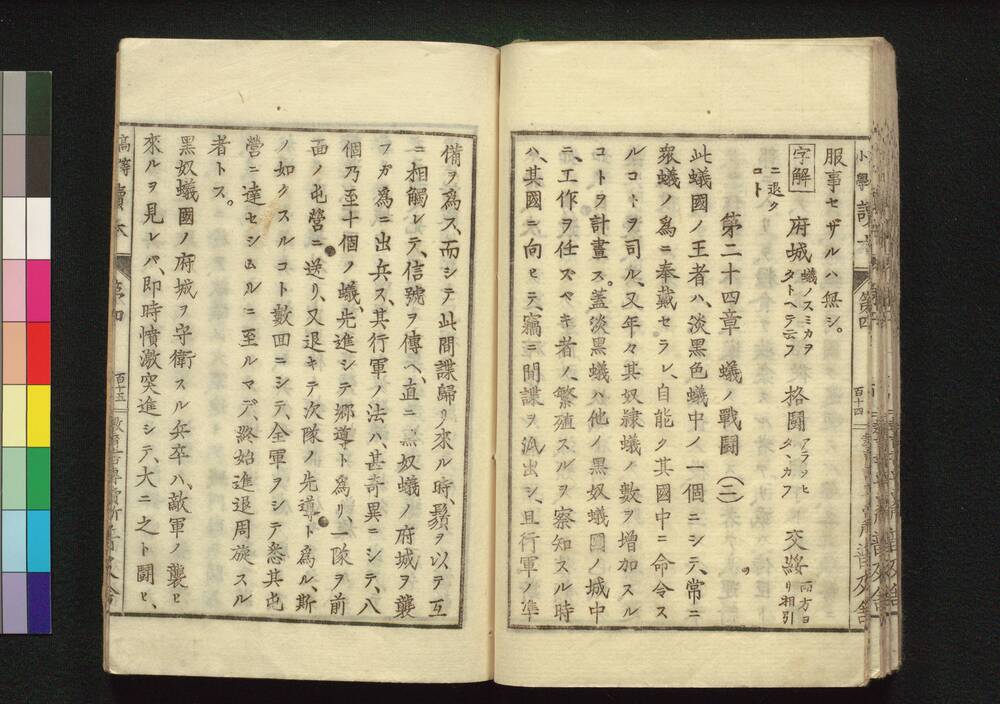 服事セザルハ無シ。
字解 府城 蟻ノスミカヲタトヘテ云フ 格鬪 アラソヒタヽカフ 交綏 両方ヨリ相引
ニ退クコト
第二十四章 蟻ノ戰鬪 (二)
此蟻國ノ王者ハ、淡黒色蟻中ノ一個ニシテ、常ニ
衆蟻ノ爲ニ奉戴セラレ、自能ク其國中ニ命令ス
ルコトヲ司ル、又年々其奴隷蟻ノ數ヲ増加スル
コトヲ計畫ス。蓋淡黒蟻ハ他ノ黒奴蟻國ノ城中
ニ、工作ヲ任ズベキ者ノ、繁殖スルヲ察知スル時
ハ、其國ニ向ヒテ、竊ニ間諜ヲ派出シ、且行軍ノ準
小學讀本
第四
百十四
備ヲ爲ス、而シテ此間諜歸リ來ル時、鬚ヲ以テ互
ニ相觸レテ、信號ヲ傳ヘ、直ニ黒奴蟻ノ府城ヲ襲
フガ爲ニ出兵ス、其行軍ノ法ハ、甚奇異ニシテ、八
個乃至十個ノ蟻、先進シテ郷導ト爲リ、一隊ヲ前
面ノ屯營ニ送リ、又退キテ次隊ノ先導ト爲ル、斯
ノ如クスルコト數回ニシテ、全軍ヲシテ悉其屯
營ニ達セシムルニ至ルマデ、終始進退周旋スル
者トス。
黒奴蟻國ノ府城ヲ守衛スル兵卒ハ、敵軍ノ襲ヒ
來ルヲ見レバ、即時憤激突進シテ、大ニ之ト鬪ヒ、
高等讀本
第四
百十五